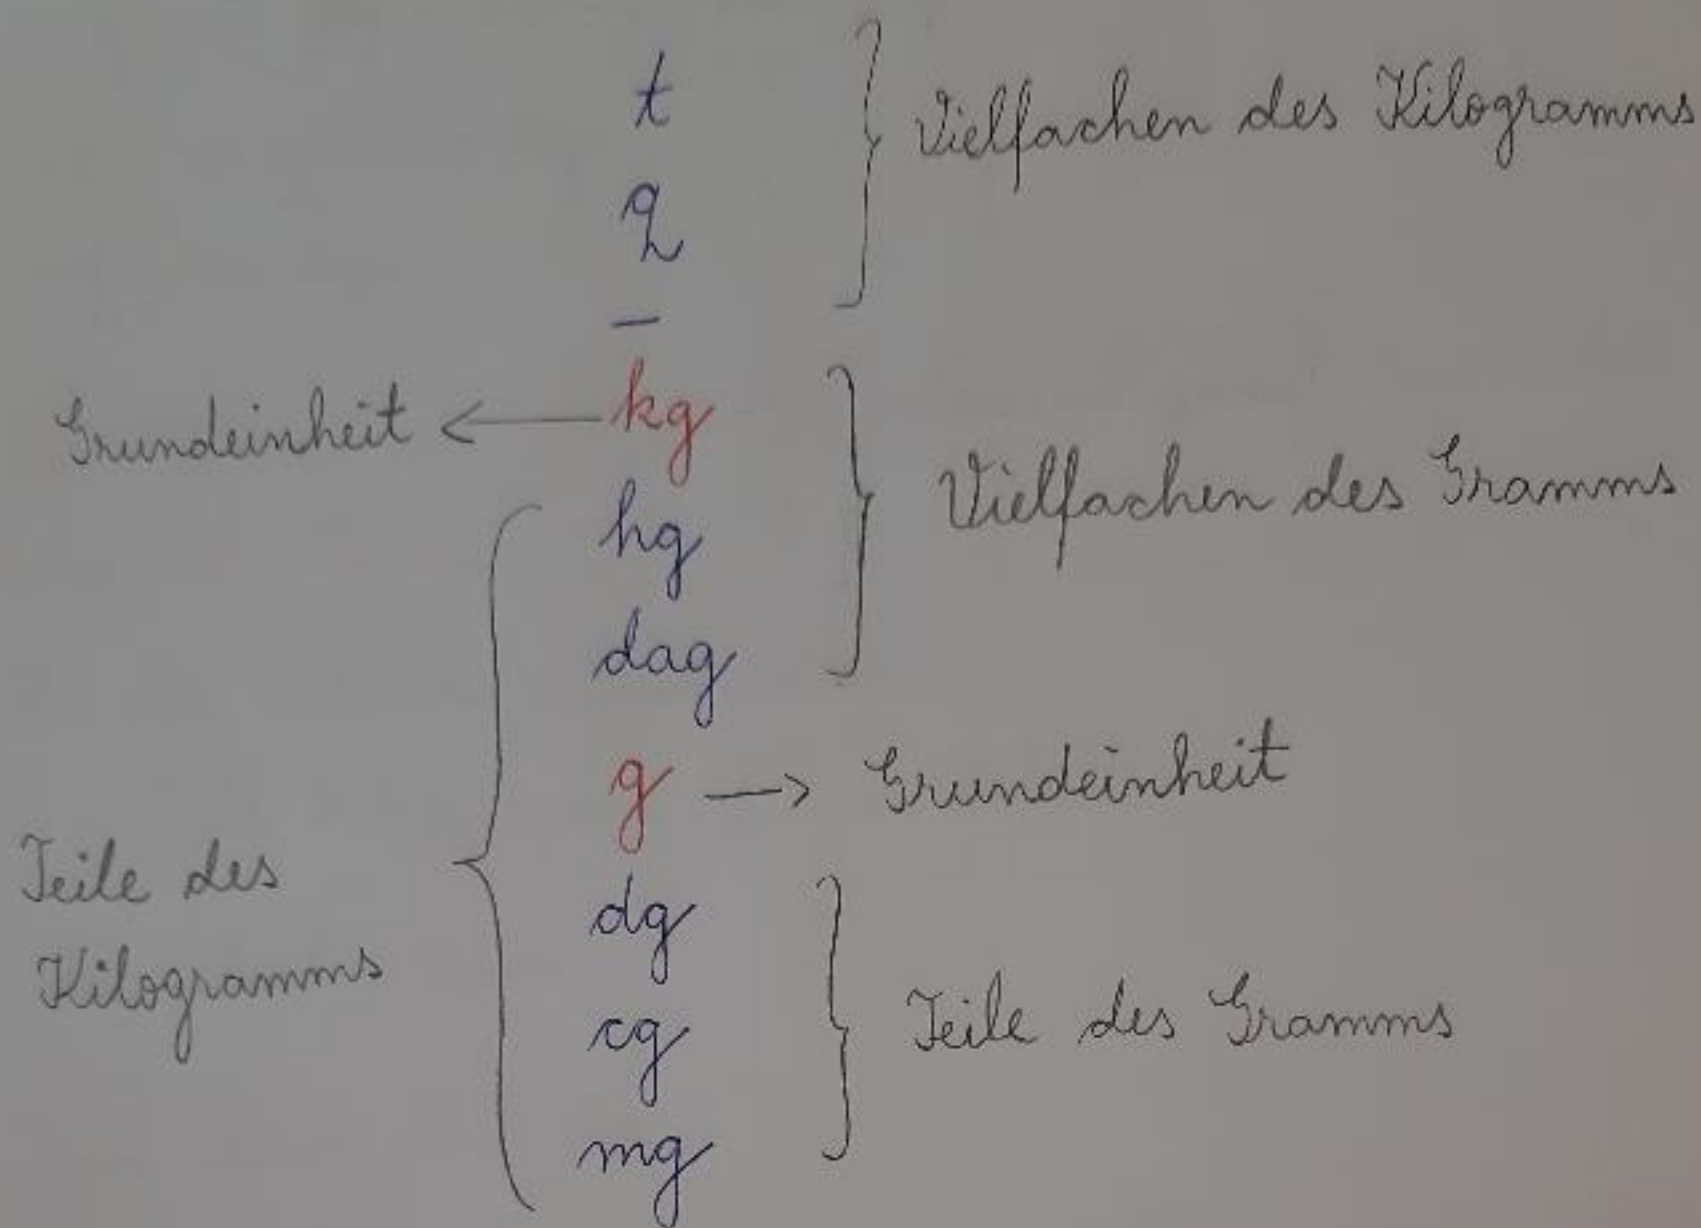 t
q
–
Vielfachen des Kilogramms
Grundeinheit <— kg
hg
dag
Vielfachen des Gramms
g —> Grundeinheit
Teile des
Kilogramms
dg
cg
mg
Teile des Gramms